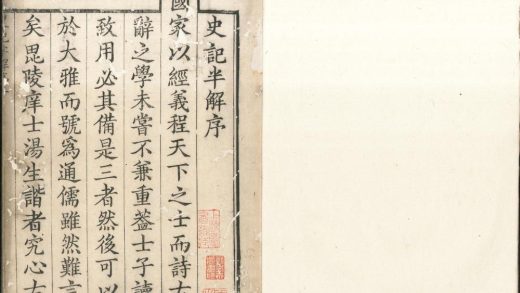 史記半解序
國家以經義程天下之士而詩古
辭之學未嘗不兼重葢士子讀
致用必其備是三者然後可以
於大雅而號爲通儒雖然難言
矣毘陵庠士湯生諧者究心古